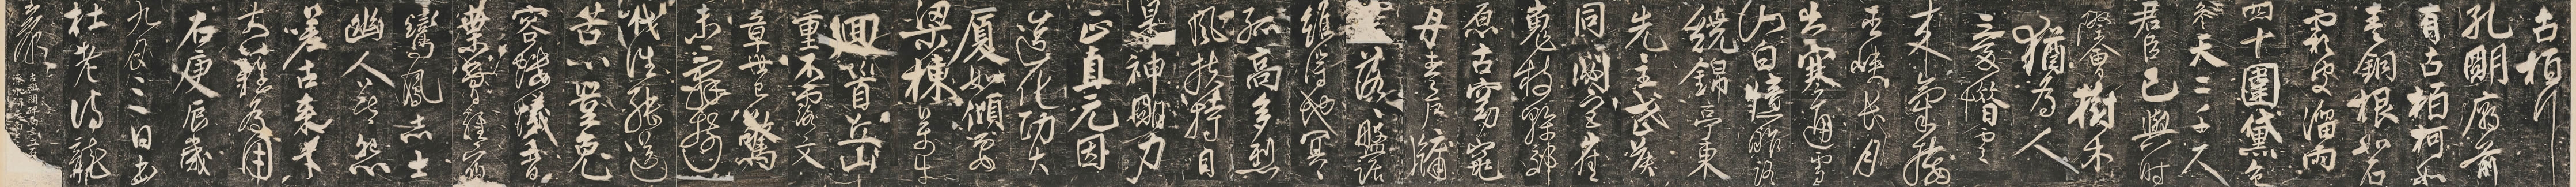 古柏行
孔明廟前
有古柏柯如
青銅根如石
霜皮溜雨
四十圍黛色
參天二千尺
君臣已與時
際會樹木
猶為人
愛惜雲
來氣接
巫峽長月
出寒通雪
山白憶昨路
繞錦亭東
先主武侯
同閟宮崔
嵬枝幹郊
原古窈窕
丹青戶牖
落落盤踞
雖得地冥冥
孤高多烈
風扶持自
是神明力
正直元因
造化功大
廈如傾要
梁棟萬牛
迴首岳山
重不露文
章世已驚
未辭剪
伐誰能送
苦心豈免
容螻蟻香
葉曾經宿
鸞鳳志士
幽人莫怨
嗟古來材
大難為用
右庚辰歲
九月三日書
杜老詩龍